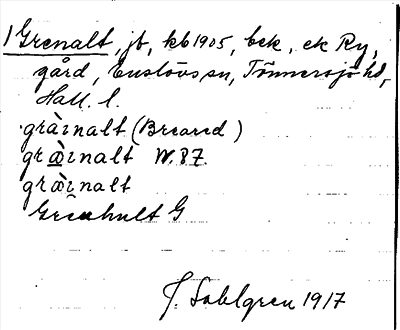 1 Grenalt, jb, kb 1905, bek, ek Ry,
gård, Enslövs sn, Tönnersjö hd,
Hall. l.
gràɪnalt (Breared)
græ̀ɪnalt W.P.7.
græ̀ɪnalt
Grenhult G
J. Sahlgren 1917